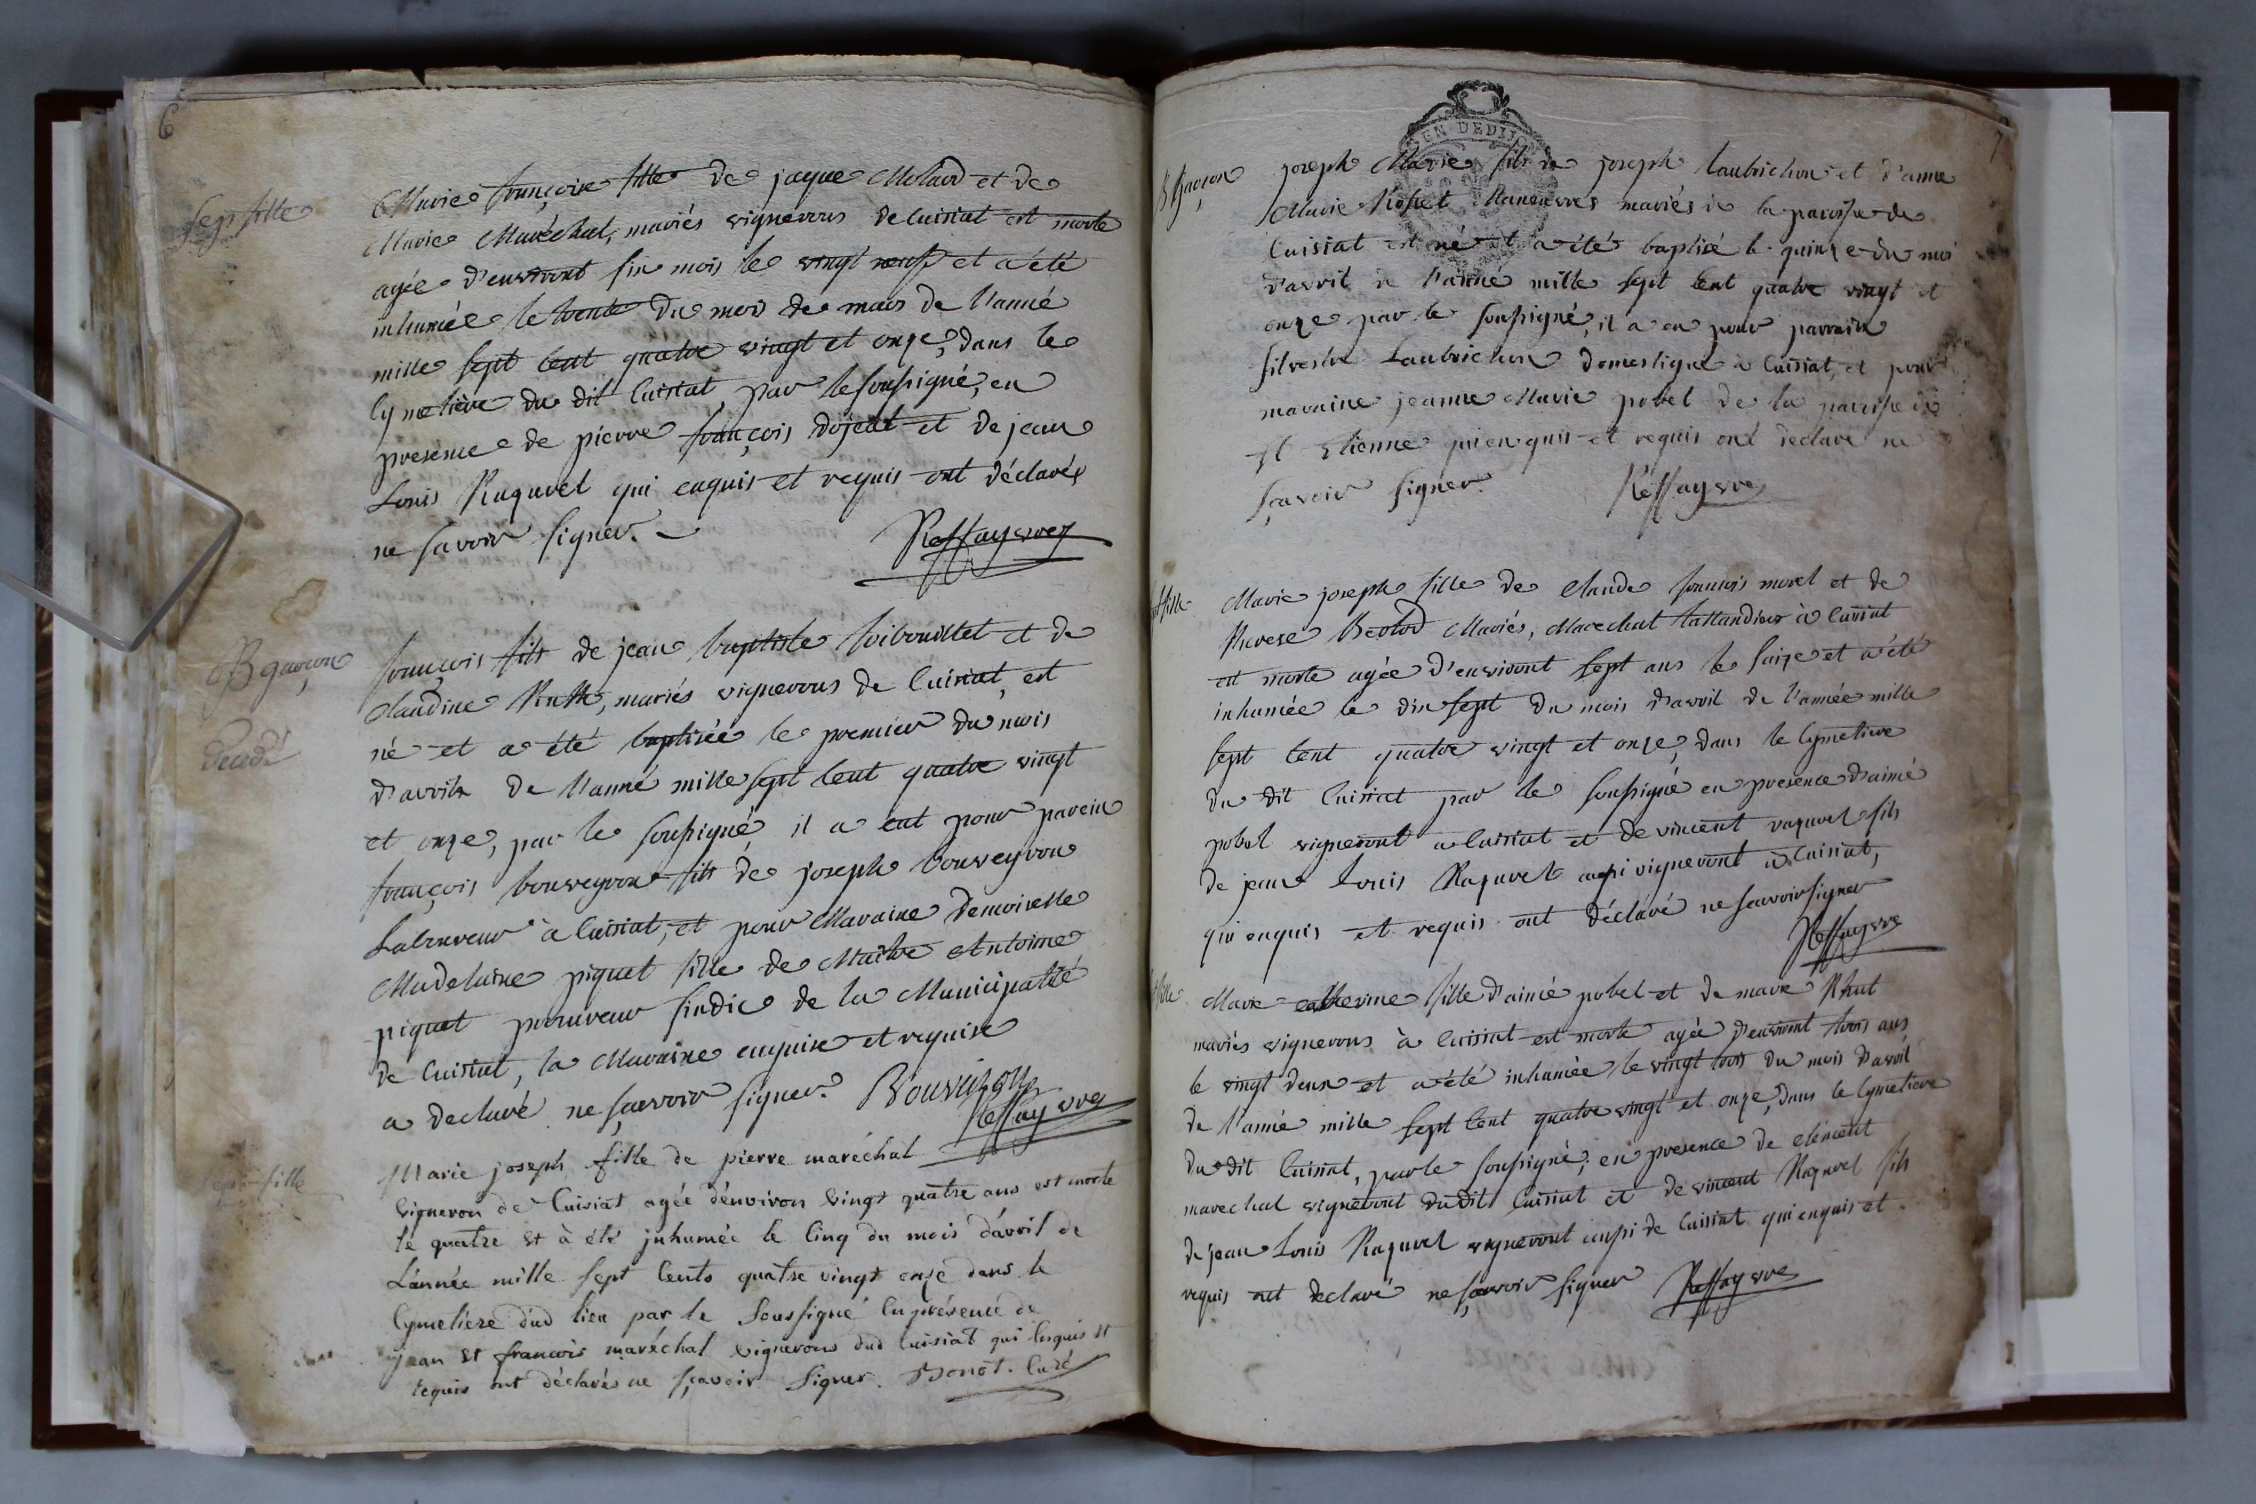 6
sep. fille
Marie françoise fille de jaque Molard et de
Marie Maréchal, mariés vignerons de Cuisiat est morte
agée d'environt six mois le vingt neuf et a été
inhumée le trente du mois de mars de l'anné
mille sept cent quatre vingt et onze, dans le
Cymetière du dit Cuisiat, par le soussigné, en
presence de pierre françois dojeat et de jean
Louis Raquvel qui enquis et requis ont déclarés
ne savoir signer.
Reffay vre
B garçon
Deced.
françois fils de jean baptiste et de
Claudine, mariés vignerons de Cuisiat, est
né et a été baptisée le premier du mois
d'avril de l'anné mille sept cent quatre vingt
et onze, par le soussigné, il a eut pour parein
françois bouveyron fils de joseph bouveyron
Laboureur à Cuisiat, et pour Maraine demoiselle
Madelaine piquet fille de Maître Antoine
piquet procureur sindic de la Municipalité
de Cuisiat, la Maraine enquise et requise
a declaré ne sçavoir signer. Bouveyron
Reffay vre
sept. fille
Marie joseph fille de pierre maréchal
vigneron de Cuisiat agée d'environ vingt quatre ans est morte
le quatre et à été inhumée le cinq du mois d'avril de
L'année mille sept cents quatre vingt onze dans le
Cymetiere dud lieu par le soussigné en présence de
jean et françois maréchal vignerons dud Cuisiat qui enquis et
requis ont déclarés ne sçavoir signer. Bonot. Curé
7
B garçon
joseph Marie fils de joseph Laubrichon et d'anne
Marie Manœuvres mariés de la paroisse de
Cuisiat est né et a étés baptisé le quinze du moi
d'avril de l'anné mille sept cent quatre vingt et
onze par le soussigné, il a eu pour parrain
silvestre Laubrichon domestique à Cuisiat, et pour
maraine jeanne Marie pobel de la paroisse de
St Etienne qui enquis et requis ont declaré ne
sçavoir signer.
Reffay vre
fille
Marie joseph fille de Claude françois morel et de
Therese Mariés, Marechal taillandier à Cuisiat
est morte agée d'environt sept ans le saize et a été
inhumée le dix sept du mois d'avril de l'année mille
sept cent quatre vingt et onze, dans le Cymetiere
du dit Cuisiat par le soussigné en presence d'aimé
pobel vigneront à Cuisiat et de vincent raquvel fils
de jean Louis Raquvel aussi vigneront à Cuisiat,
qui enquis et requis ont déclaré ne scavoir signer
Reffay vre
fille
Marie catherine fille d'aimé pobel et de marie
mariés vignerons à Cuisiat est morte agée d'environt trois ans
le vingt deux et a été inhumée le vingt trois du mois d'avril
de l'anné mille sept cent quatre vingt et onze, dans le Cymetiere
du dit Cuisiat, par le soussigné, en presence de clement
marechal vigneront du dit Cuisiat et de vincent Raquvel fils
de jean Louis Raquvel vigneront aussi de Cuisiat qui enquis et
requis ont declaré ne sçavoir signer Reffay vre